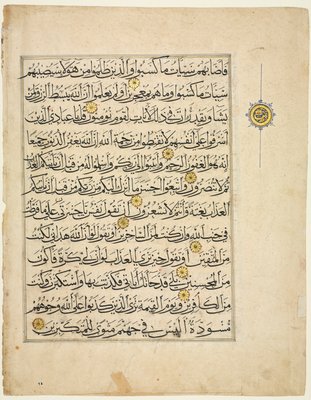 فَاَصَابَهُمْ سَيِّئَاتُ مَا كَسَبُوا وَالَّذِينَ ظَلَمُوا مِنْ هَؤُلَاءِ سَيُصِيبُهُمْ
سَيِّئَاتُ مَا كَسَبُوا وَمَا هُمْ بِمُعْجِزِينَ اَوَلَمْ يَعْلَمُوا اَنَّ اللهَ يَبْسُطُ الرِّزْقَ لِمَنْ
يَشَاءُ وَيَقْدِرُ اِنَّ فِي ذَلِكَ لَآيَاتٍ لِقَوْمٍ يُؤْمِنُونَ قُلْ يَا عِبَادِيَ الَّذِينَ
اَسْرَفُوا عَلَى اَنْفُسِهِمْ لَا تَقْنَطُوا مِنْ رَحْمَةِ اللهِ اِنَّ اللهَ يَغْفِرُ الذُّنُوبَ جَمِيعًا
اِنَّهُ هُوَ الْغَفُورُ الرَّحِيمُ وَاَنِيبُوا اِلَى رَبِّكُمْ وَاَسْلِمُوا لَهُ مِنْ قَبْلِ اَنْ يَاْتِيَكُمُ الْعَذَابُ
ثُمَّ لَا تُنْصَرُونَ وَاتَّبِعُوا اَحْسَنَ مَا اُنْزِلَ اِلَيْكُمْ مِنْ رَبِّكُمْ مِنْ قَبْلِ اَنْ يَاْتِيَكُمُ
الْعَذَابُ بَغْتَةً وَاَنْتُمْ لَا تَشْعُرُونَ اَنْ تَقُولَ نَفْسٌ يَا حَسْرَتَى عَلَى مَا فَرَّطْتُ
فِي جَنْبِ اللهِ وَاِنْ كُنْتُ لَمِنَ السَّاخِرِينَ اَوْ تَقُولَ لَوْ اَنَّ اللهَ هَدَانِي لَكُنْتُ
مِنَ الْمُتَّقِينَ اَوْ تَقُولَ حِينَ تَرَى الْعَذَابَ لَوْ اَنَّ لِي كَرَّةً فَاَكُونَ
مِنَ الْمُحْسِنِينَ بَلَى قَدْ جَاءَتْكَ آيَاتِي فَكَذَّبْتَ بِهَا وَاسْتَكْبَرْتَ وَكُنْتَ
مِنَ الْكَافِرِينَ وَيَوْمَ الْقِيَمَةِ تَرَى الَّذِينَ كَذَبُوا عَلَى اللهِ وُجُوهُهُمْ
مُسْوَدَّةٌ اَلَيْسَ فِي جَهَنَّمَ مَثْوًى لِلْمُتَكَبِّرِينَ